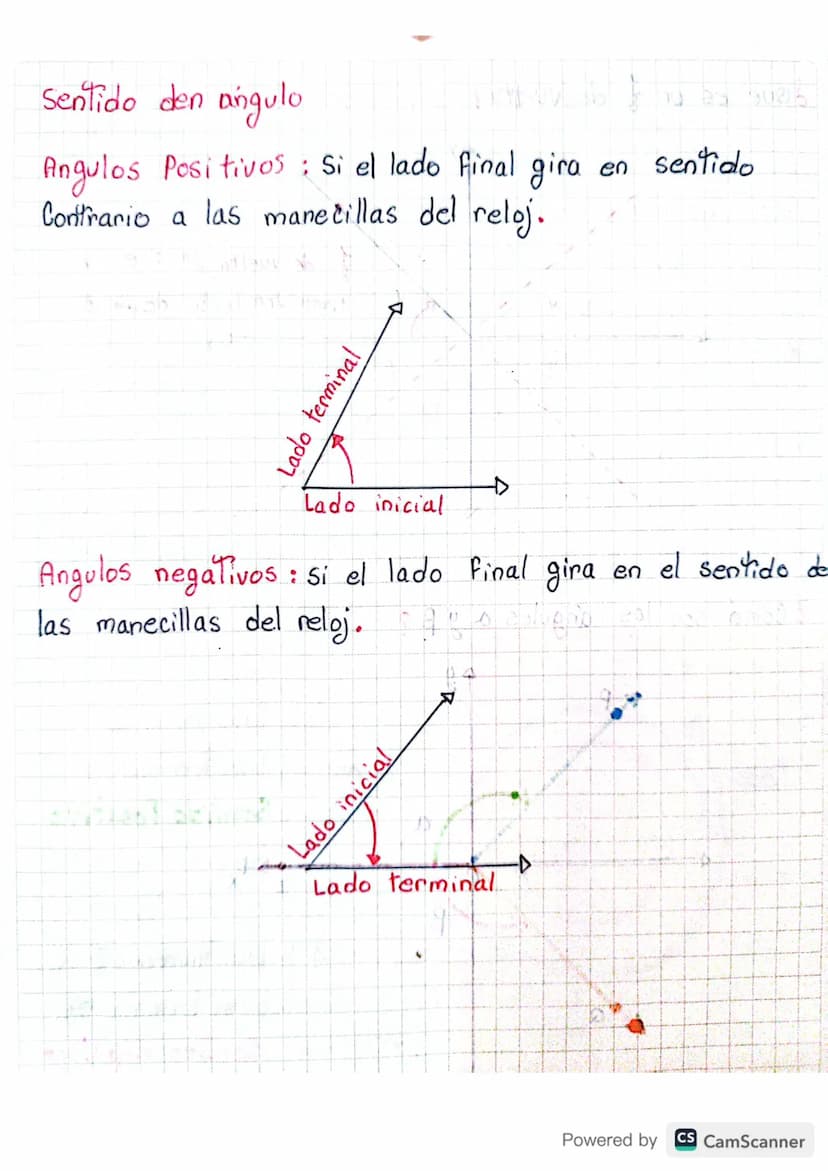 Sentido den angulo
Angulos Positivos : Si el lado final gira en sentido
Contrario a las manecillas del reloj.
Lado terminal
Lado inicial
Angulos negativos : si el lado final gira en el sentido de
las manecillas del reloj.
Lado inicial
Lado terminal
Powered by CS CamScanner